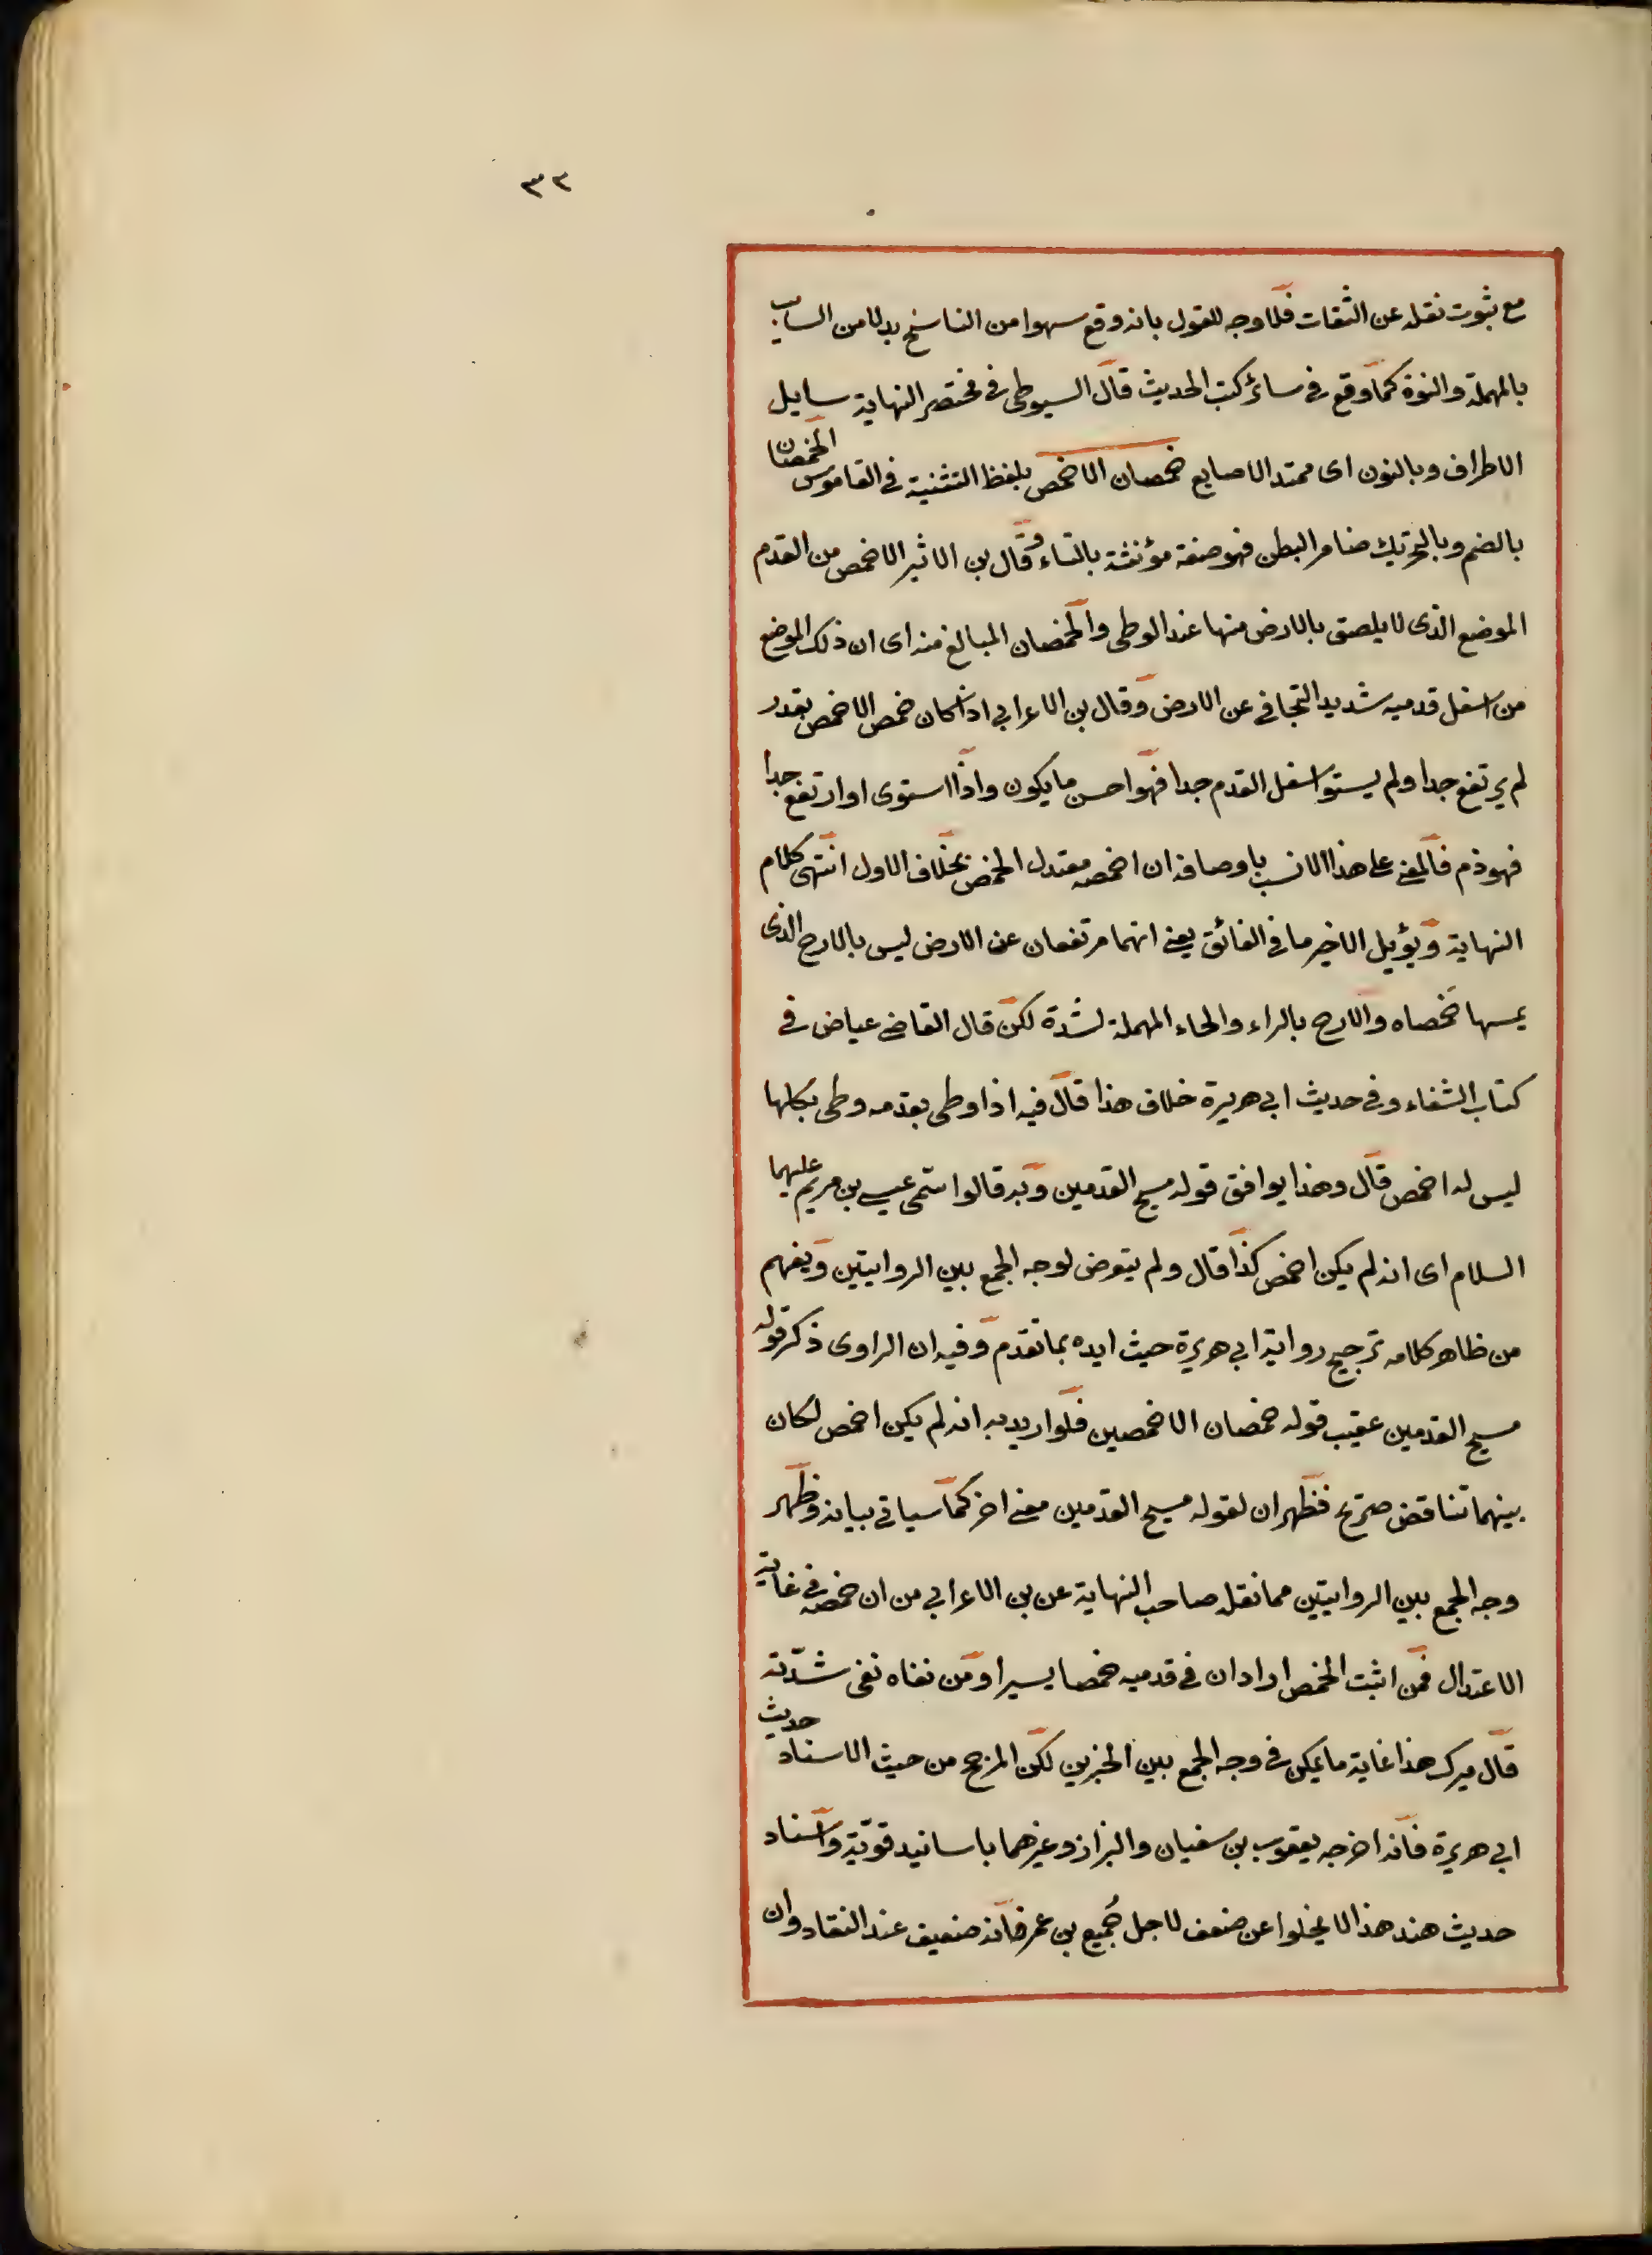 ٣٢
مع ثبوت نقله عن الثقات فلا وجه للقول بانه وقع سهوا من الناسخ بدلا من السايب
بالمهملة والنؤة كما وقع في سائر كتب الحديث قال السيوطي في مختصر النهاية سايل
الاطراف وبالنون اى ممتد الاصابع خمصان الاخمص بلفظ التثنية في القاموس الخمصان
بالضم وبالتحريك ضامر البطن فهو صفة مؤنثة بالتاء وقال بن الاثير الاخمص من القدم
الموضع الذى لا يلصق بالارض منها عند الوطى والخمصان المبالغ منه اى ان ذلك الموضع
من اسفل قدميه شديد التجافي عن الارض وقال بن الاعرابي اذا كان خمص الاخمص بقدر
لم يرتفع جدا ولم يستو اسفل القدم جدا فهو احسن ما يكون واذا استوى او ارتفع جدا
فهو ذم فالمعنى على هذا الانسب باوصافه ان اخمصه معتدل الخمص بخلاف الاول انتهى كلام
النهاية ويؤيل الاخير ما في الفائق يعنى انهما مرتفعان عن الارض ليس بالارح الذى
يمسها خمصاه والارح بالراء والحاء المهملة لشدة لكن قال القاضى عياض في
كتاب الشفاء وفي حديث ابي هريرة خلاف هذا قال فيه اذا وطى بقدمه وطى بكلها
ليس له اخمص قال وهذا يوافق قوله مسيح القدمين وبه قالوا سمى عيسى بن مريم عليهما
السلام اى انه لم يكن اخمص كذا قال ولم يتعرض لوجه الجمع بين الروايتين ويفهم
من ظاهر كلامه ترجيح رواية ابي هريرة حيث ايده بما تقدم وفيه ان الراوى ذكر قوله
مسيح القدمين عقيب قوله خمصان الاخمصين فلو اريد به انه لم يكن اخمص لكان
بينهما تناقض صريح فظهر ان لقوله مسيح القدمين معنى اخر كما سياتي بيانه وظهر
وجه الجمع بين الروايتين مما نقله صاحب النهاية عن بن الاعرابي من ان خمصه في غاية
الاعتدال فمن اثبت الخمص اراد ان في قدميه خمصا يسيرا ومن نفاه نفى شدّته
قال ميرك هذا غاية ما يمكن في وجه الجمع بين الخبرين لكن المرجح من حيث الاسناد حديث
ابي هريرة فانه اخرجه يعقوب بن سفيان والبزار وغيرهما باسانيد قوّية واسناد
حديث هند هذا لا يخلوا عن ضعف لاجل جُميع بن عمر فانه ضعيف عند النقاد وان